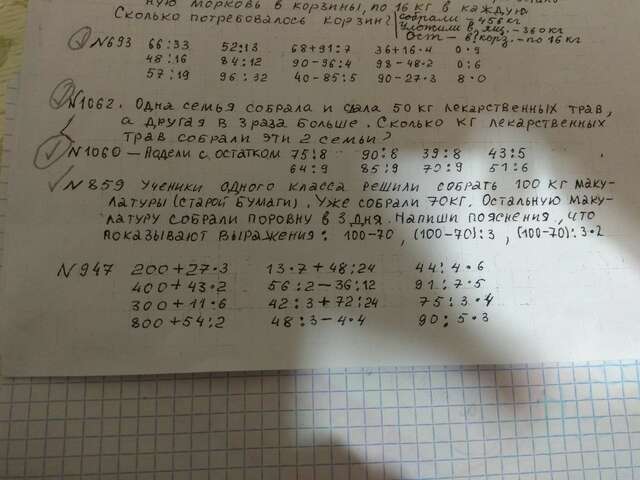 ную морковь в корзины, по 16 кг в каждую.
Сколько потребовалось корзин?
собрали – 456 кг
уложили в ящ. – 360 кг
Ост – в (корз. – по 16 кг
N693 66:33 52:13 68+91:7 36+16•4 0•9
48:16 84:12 90-96:4 98-48•2 0:6
57:19 96:32 40-85:5 90-27•3 8•0
N1062. Одна семья собрала и сдала 50 кг лекарственных трав,
а другая в 3 раза больше. Сколько кг лекарственных
трав собрали эти 2 семьи?
N1060 – Надели с остатком 75:8 90:8 39:8 43:5
64:9 85:9 70:9 51:6
N859 Ученики одного класса решили собрать 100 кг маку-
латуры (старой бумаги). Уже собрали 70кг. Остальную маку-
латуру собрали поровну в 3 дня. Напиши пояснения, что
показывают выражения: 100-70, (100-70):3, (100-70):3•2
N947 200+27•3 13•7+48:24 44:4•6
400+43•2 56:2-36:12 91:7•5
300+11•6 42:3+72:24 75:3•4
800+54:2 48:3-4•4 90:5•3